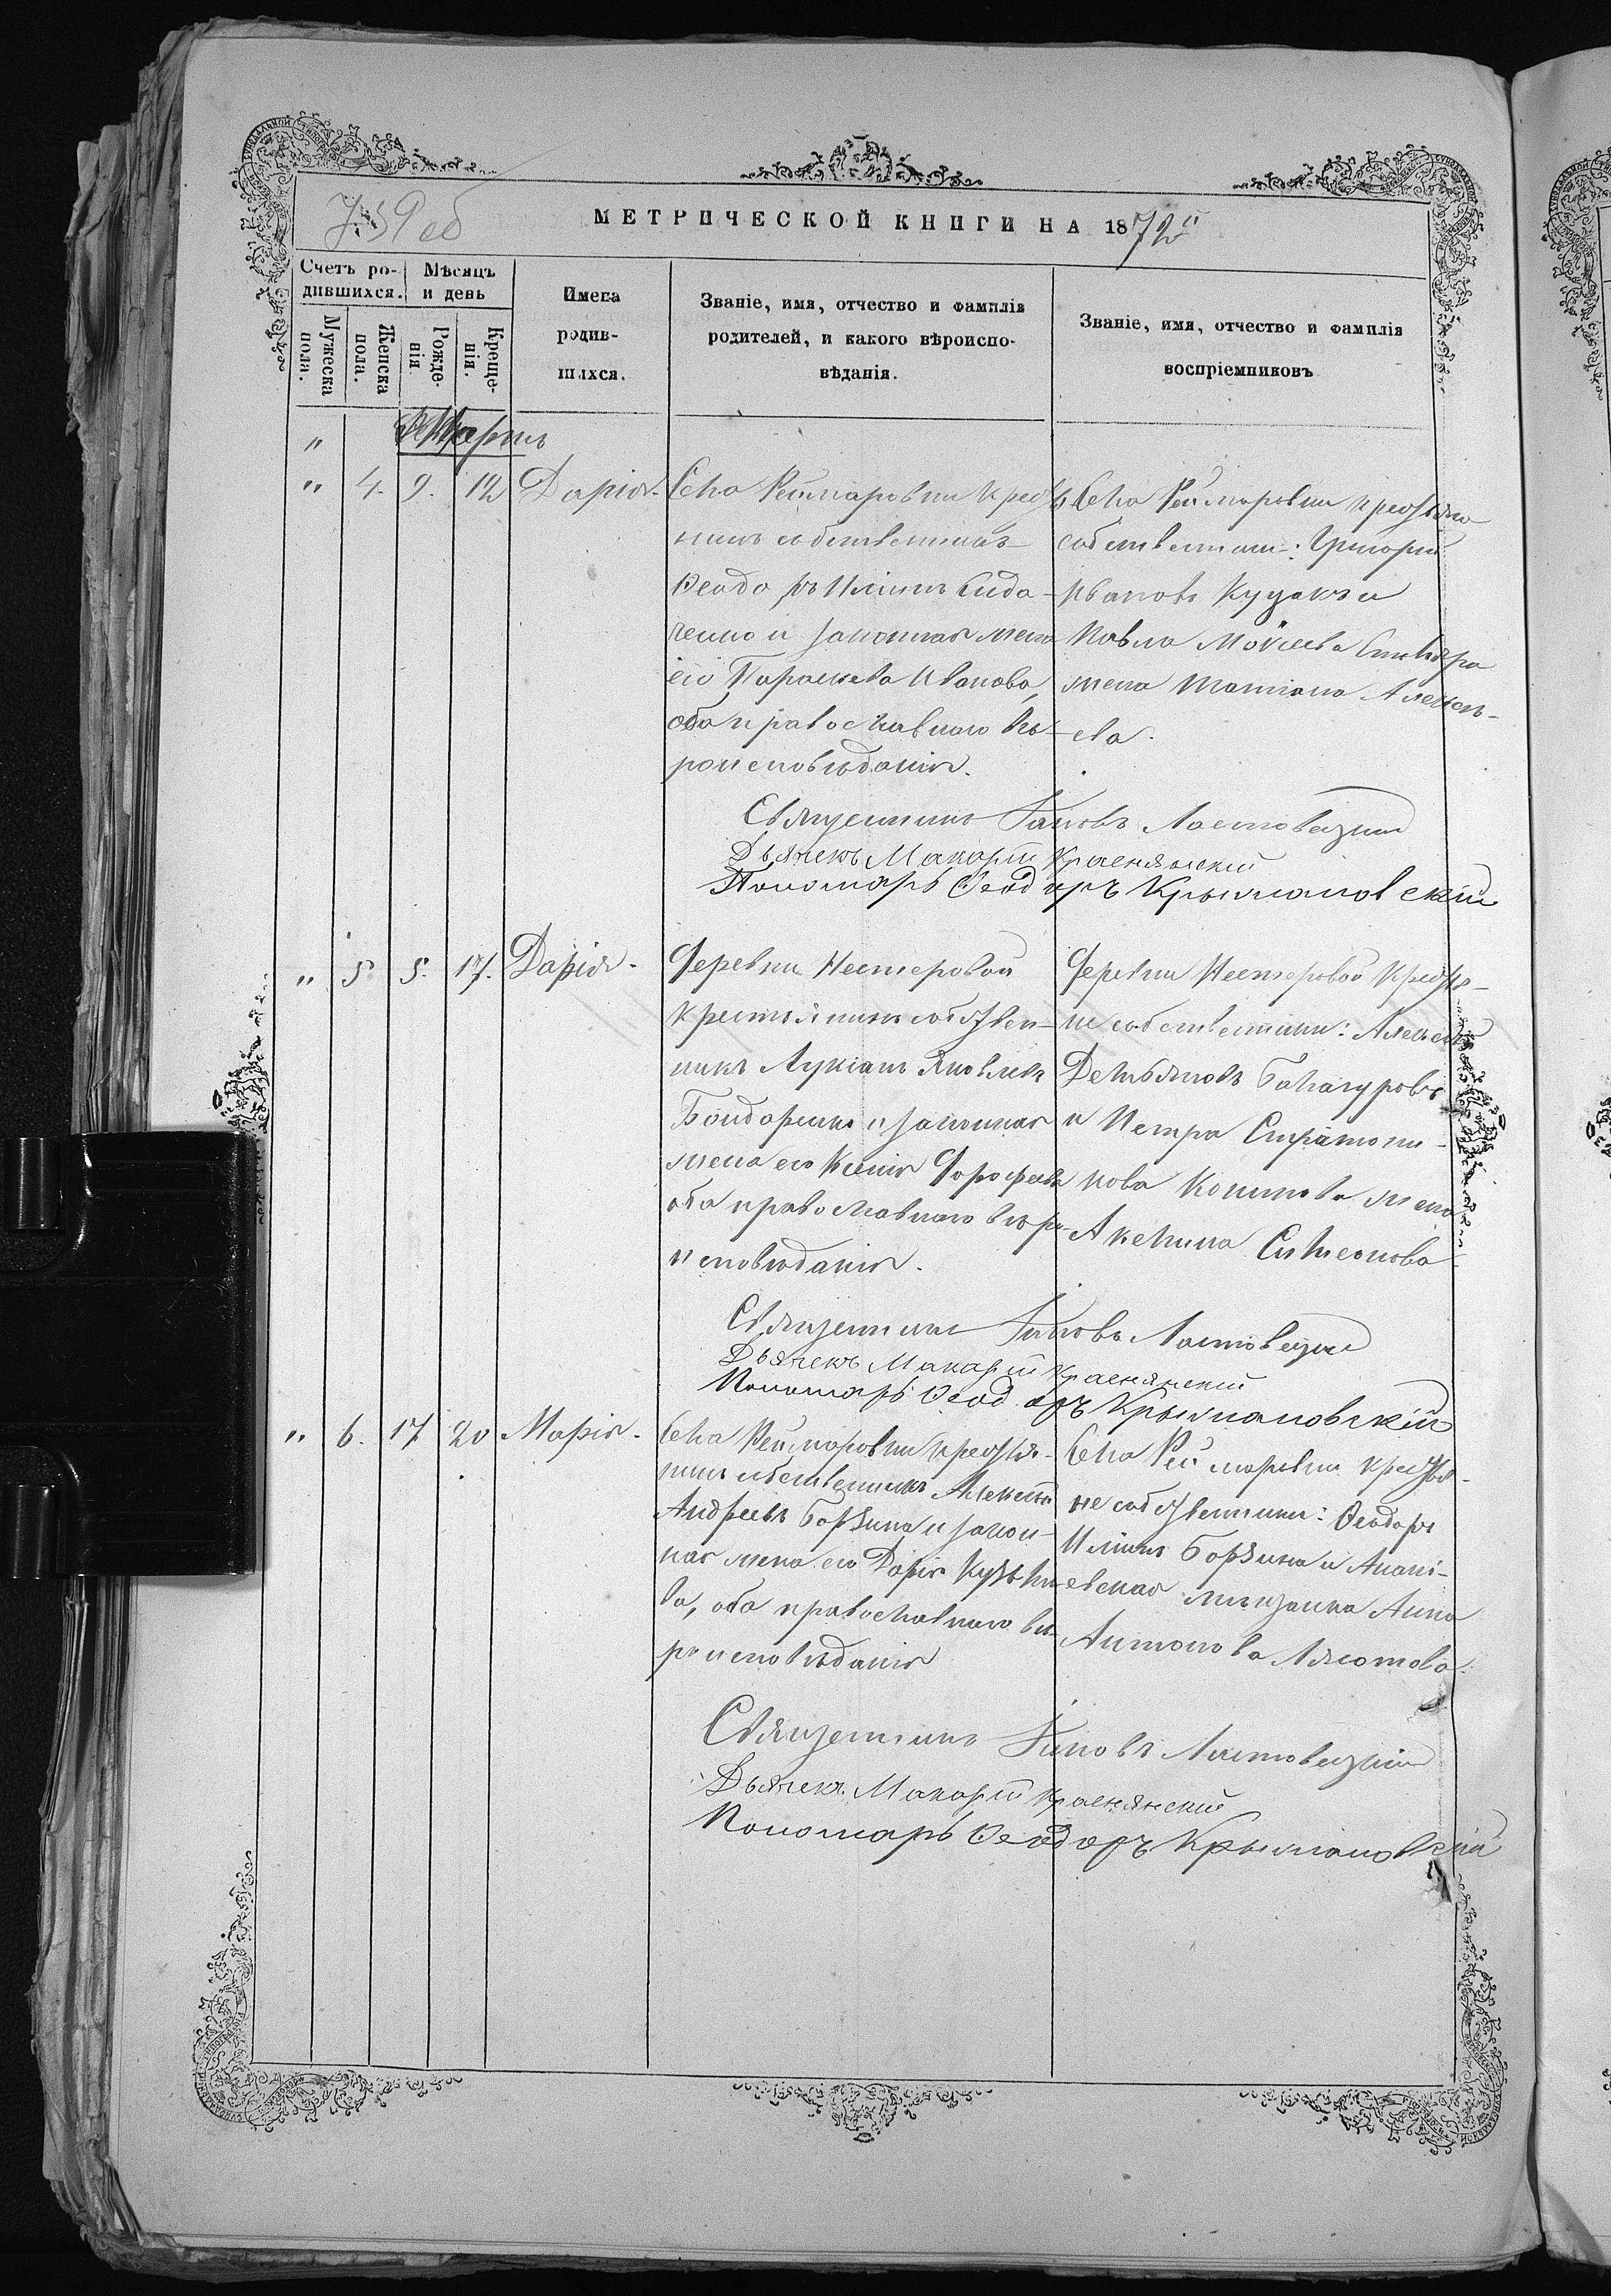 739 об
МЕТРИЧЕСКОЙ КНИГИ НА 1872й
Счетъ ро-
дившихся.
Мѣсяцъ
и день
Имена
родив-
шихся.
Званіе, имя, отчество и фамилія
родителей, и какого вѣроиспо-
вѣданія.
Званіе, имя, отчество и фамилія
воспріемниковъ
Мужеска
пола.
Женска
пола.
Рожде-
нія
Креще-
нія.
" Мартъ
" 4. 9. 12 Дарія.
Села Реймаровки крестья
нинъ собственникъ
Ѳеодоръ Илiинъ Сидо-
ченко и законная жена
его Параскева Иванова,
оба православнаго вѣ-
роисповѣданія.
Села Реймаровки крестьяне
собственники: Григорій
Ивановъ Куцакъ и
Павла Моѵсеева Скляра
жена Татіана Алексѣ-
ева.
Священникъ Іаковъ Ластовецкій
Дьячекъ Макарій Краснянскій
Пономарь Ѳеодоръ Крыжановскій
" 5 5. 17. Дарія.
Деревни Нестеровой
крестьянинъ собствен-
никъ Лукіанъ Яковлевъ
Бондаренко и законная
жена его Ксенія Дорофеева
оба православнаго вѣро-
исповѣданія.
Деревни Нестеровой крестья-
не собственники: Алексей
Демьяновъ Балагуровъ
и Петра Спиридони-
кова жена
Акелина Симеонова
Священникъ Іаковъ Ластовецкій
Дьячекъ Макарій Краснянскій
Пономарь Ѳеодоръ Крыжановскій
" 6. 17 20 Марія.
Села Реймаровки крестья-
нинъ собственникъ Алексѣй
Андреевъ Борзина и закон-
ная жена его Дарія Кузьми-
ва, оба православнаго вѣ-
роисповѣданія
Села Реймаровки крестья-
не собственники: Ѳеодоръ
Илiинъ Борзина и Анані-
евская мѣщанка Анна
Антонова Лясотова.
Священникъ Іаковъ Ластовецкій
Дьячекъ Макарій Краснянскій
Пономарь Ѳеодоръ Крыжановскій